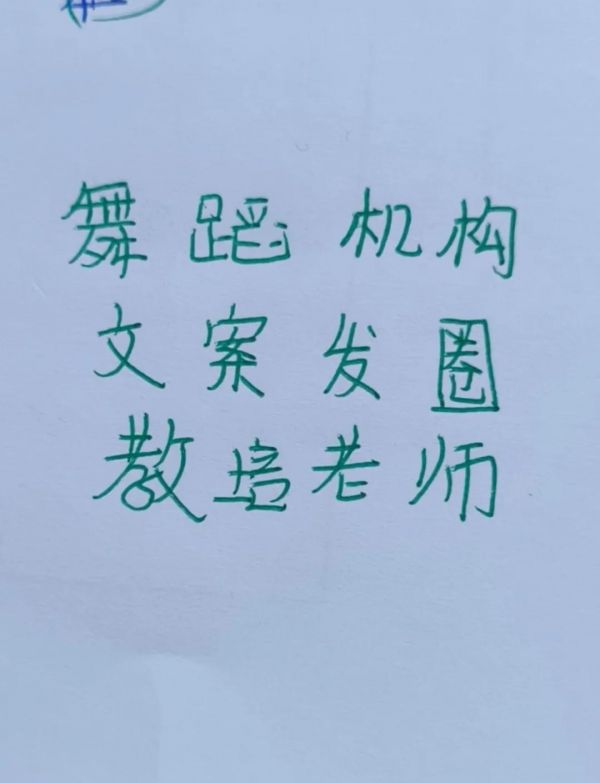 舞蹈机构
文案发圈
教培老师